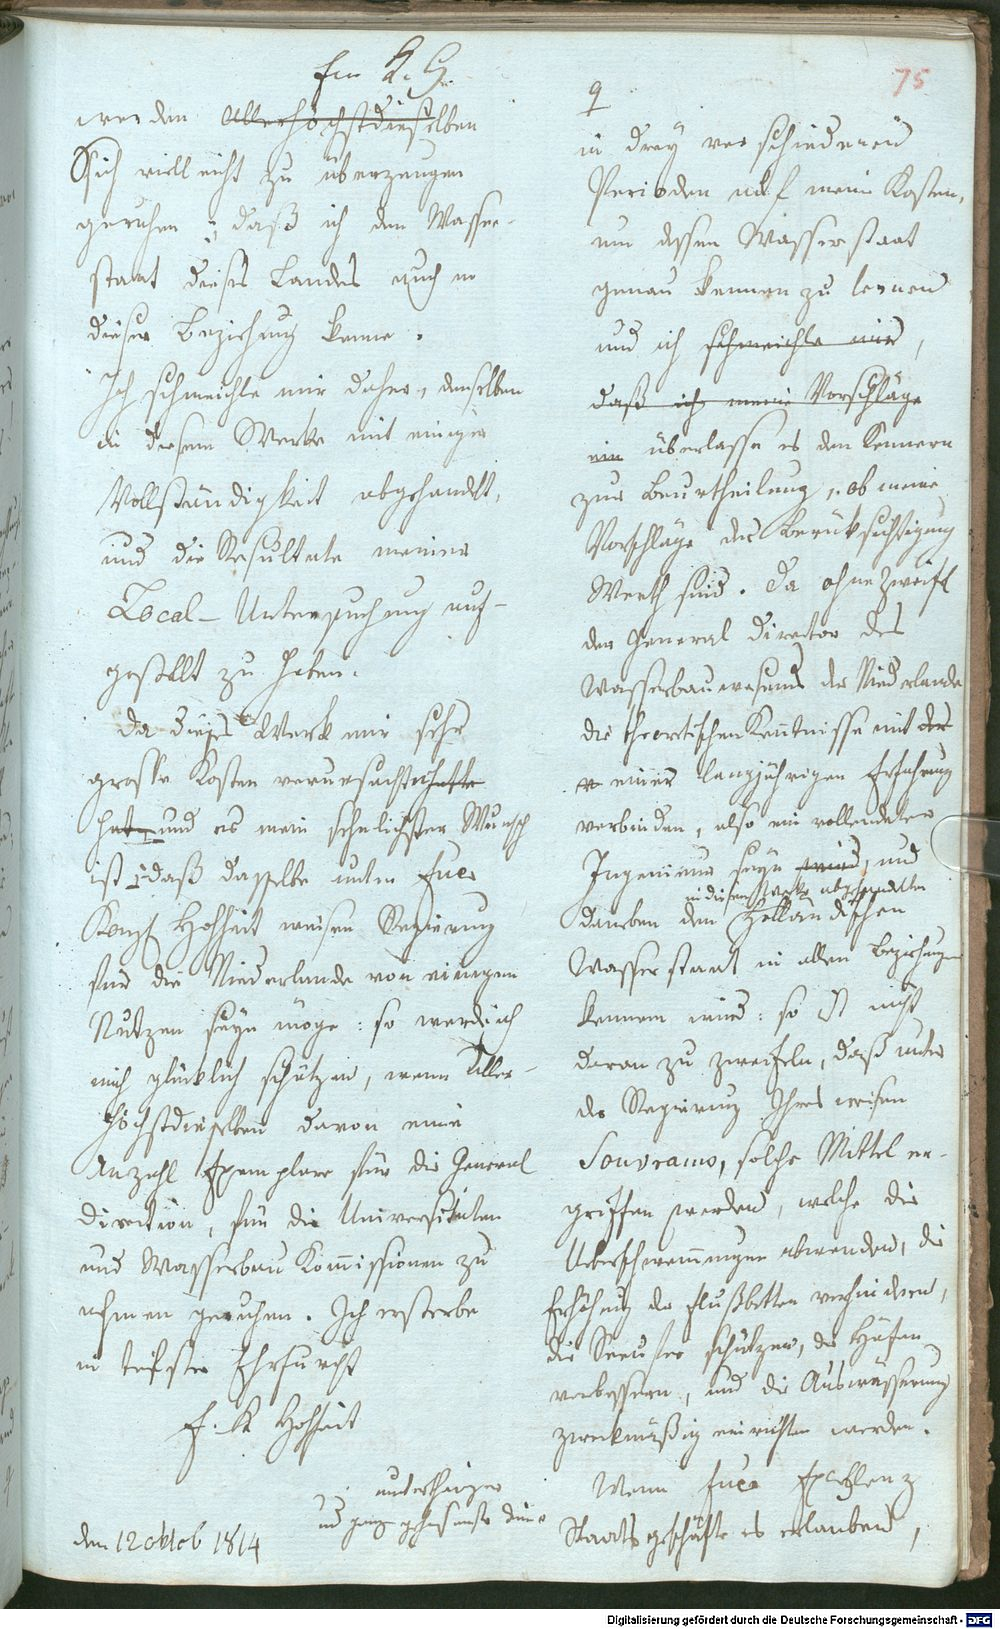 Eu K. H.
werden Allerhöchstdieselben
Sich vielleicht zu überzeugen
geruhen, daß ich den Wasser-
staat dieses Landes auch in
dieser Beziehung kenne.
Ich schmeichle mir daher, denselben
in diesem Werke mit einiger
Vollständigkeit abgehandelt,
und die Resultate meiner
Local-Untersuchung auf-
gestellt zu haben.
Da dieses Werk mir sehr
grosse Kosten verursachte hatte
hat und es mein sehnlichster Wunsch
ist daß dasselbe unter Euer
Königl Hohheit weisen Regierung
für die Niederlande von einigem
Nutzen seyn möge: so werde ich
mich glücklich schätzen, wenn Aller-
höchstdieselben davon eine
Anzahl Exemplare für die General
Direction, für die Universitäten
und Wasserbau Kommissionen zu
nehmen geruhen. Ich ersterbe
in tiefster Ehrfurcht
E. K Hohheit
unterthäniger
und ganz gehorsamste Diener
den 12 oktob 1814
75
9
in drey verschiedenen
Perioden auf meine Kosten,
um dessen Wasserstaat
genau kennen zu lernen
und ich schmeichle mir,
daß ich meine Vorschläge
ein überlasse es den Kennern
zur Beurtheilung, ob meine
Vorschläge der Berüksichtigung
Werth sind. Da ohne Zweifel
der General Director des
Wasserbauwesens der Niederlande
die theoretischen Kenntnisse mit der
einer langjährigen Erfahrung
verbinden, also ein vollendeter
Ingenieur seyn wird, und
in diesem Werke abgehandelten
daneben den Holländischen
Wasserstaat in allen Beziehungen
kennen wird: so ist nicht
daran zu zweifeln, daß unter
der Regierung Ihres weisen
Souverains, solche Mittel er-
griffen werden, welche die
Ueberschwemmungen abwenden, die
Erhöhung der Flußbetten verhindern,
die Seeufer schützen, die Häfen
verbessern, und die Auswässerung
zweckmäßig einrichten werden.
Wenn Euer Excellenz
Staatsgeschäfte es erlauben,
Digitalisierung gefördert durch die Deutsche Forschungsgemeinschaft - DFG